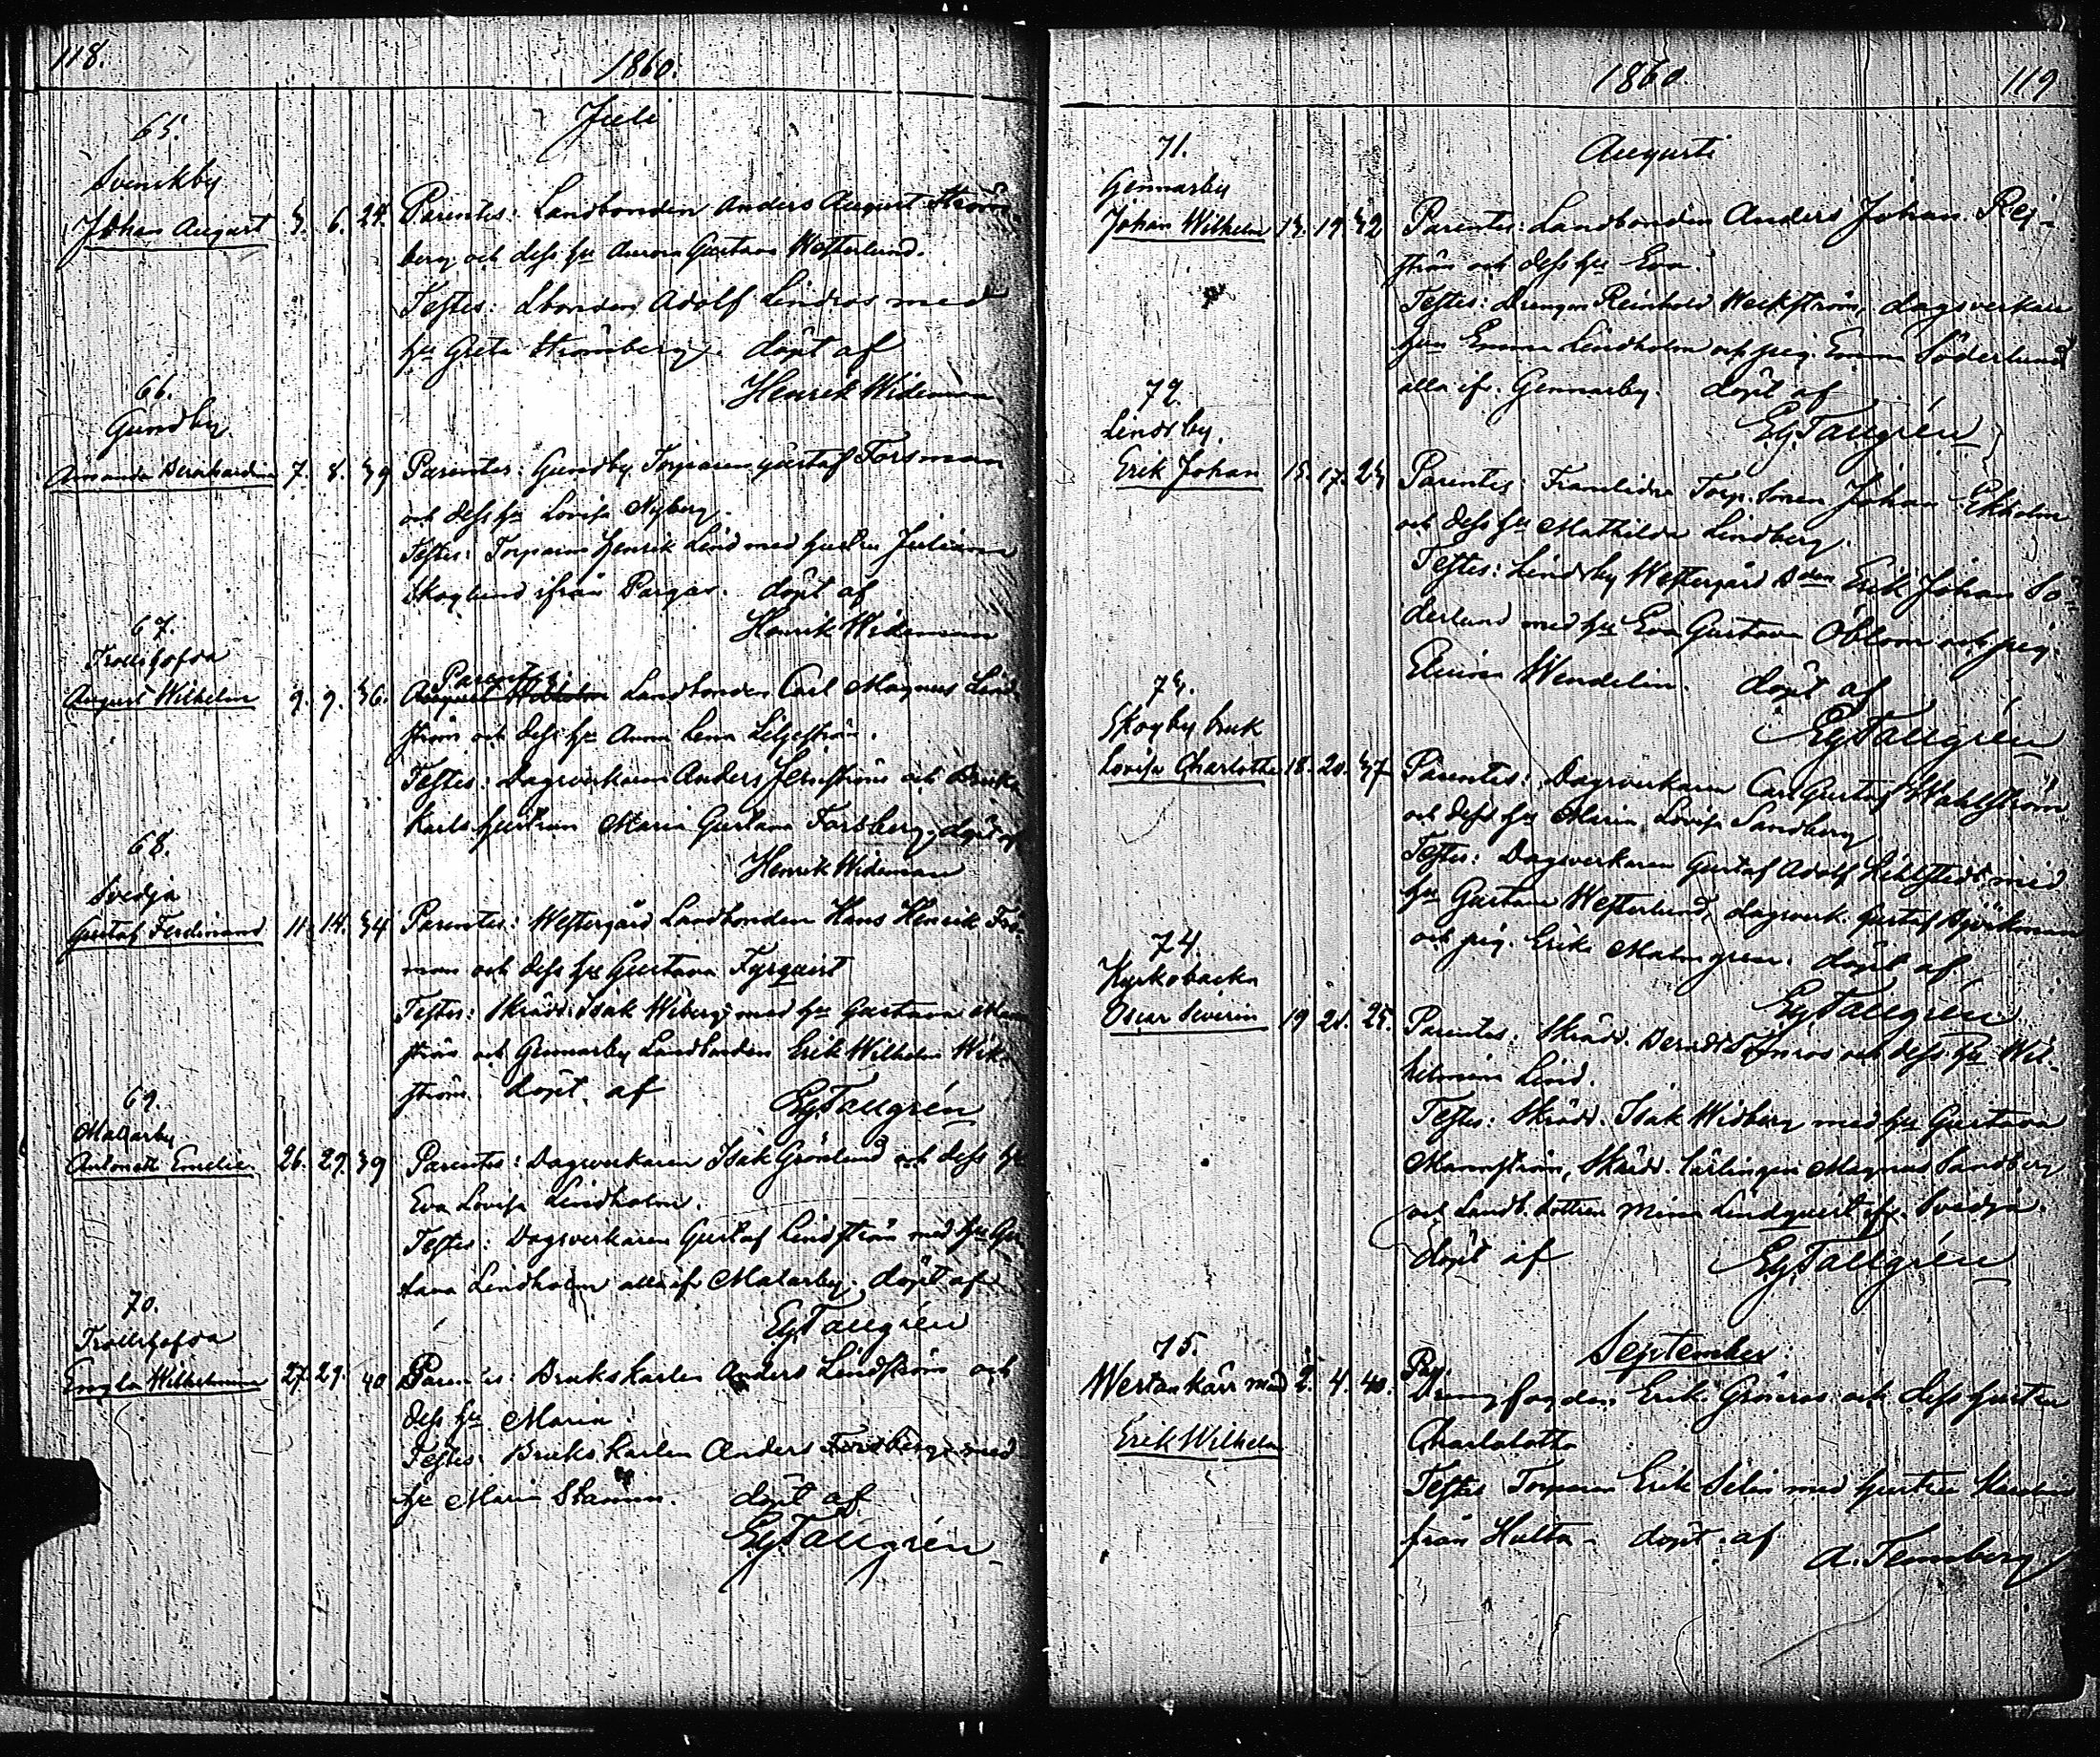 118.
1860.
Juli
65.
Svenskby
Johan August 3. 6. 24. Parentes: Landbonden Anders August Ström-
berg och dess hu Aurora Gustava Westerlund.
Testes: Lbonden Adolf Lindros med
hu Greta Strömberg. döpt af
Henrik Wideman
66.
Gundby
Amanda Bernhardina 7. 8. 39 Parentes: Gundby Torparen Gustaf Forsman
och dess hu Lovisa Nyberg.
Testes: Torparen Henrik Lind med hustru Juliana
Skoglund ifrån Pargas. döpt af
Henrik Wideman
67.
Trollshofda
August Wilhelm 9. 9. 36. Parentes: Landbonden Carl Magnus Lind-
ström och dess hu Anna Lena Liljeström.
Testes: Dagsverkaren Anders Jernström och Bruks
karls hustrun Maria Gustava Forsberg, döpt af
Henrik Wideman
68.
Svedja
Gustaf Ferdinand 11. 14. 34 Parentes: Westergård Landbonden Hans Henrik Fors-
man och dess hu Gustava Fyrquist
Testes: Skrädd. Isak Wiberg med hu Gustava Mann
ström och Gennarby Landbonden Erik Wilhelm Wik-
ström. döpt af
Eg. Tallgrén
69.
Malarby
Antonett Emelie 26. 29. 39 Parentes: Dagsverkaren Isak Grönlund och dess hu
Eva Lovisa Lindholm.
Testes: Dagsverkaren Gustaf Lindström med hu Gus
tava Lindholm alla ifr Malarby. döpt af
Eg. Tallgrén
70.
Trollshofda
Engla Wilhelmina 27. 29. 40 Parentes: Brukskarlen Anders Lindström och
dess hu Maria
Testes: Bruks karlen Anders Forsberg med
hu Maria Stamm. döpt af
Eg. Tallgrén
1860.
119
Augusti
71.
Gennarby
Johan Wilhelm 13. 19 32 Parentes: Landbonden Anders Johan Rej-
ström och dess hu Eva.
Testes: Drengen Reinhold Weckström, dagsverkare
hun Emma Lindholm och pig. Emma Söderlund
alla ifr. Gennarby. döpt af
Eg. Tallgrén
72.
Lindsby.
Erik Johan 15. 17. 23 Parentes: Framlidne Torp. Sonen Johan Ekholm
och dess hu Mathilda Lindberg.
Testes: Lindsby Westergård Bden Erik Johan Sö-
derlund med hu Eva Gustava Öblom och pig.
Elmina Wendelin. döpt af
Eg. Tallgrén
73.
Skogby bruk
Lovisa Charlotta 18. 20. 37 Parentes: Dagsverkaren Carl Gustaf Wahlström
och dess hu Maria Lovisa Sandberg.
Testes: Dagsverkaren Gustaf Adolf med
hu Gustava Westerlund, dagsverk. Gustaf Björkman
och pig. Erika Malmgren. döpt af
Eg. Tallgrén
74.
Kyrkobacka
Oscar Severin 19 21. 25. Parentes: Skrädd. Berndt och dess hu Wil-
helmina Lind.
Testes: Skrädd. Isak Widberg med hu Gustava
Mannström, Skrädd. lärlingen Magnus Sandberg
och Landb. dottren Mina Lindquist ifr. Svedja.
döpt af Eg. Tallgrén
September.
75.
Wertankärr med 2. 4. 40. Drengfogden Erik Grönros och dess hustru
Erik Wilhelm Charlolotta
Testes Torparen Erik Selin med hustru
från Hulta. döpt af A. Tennberg